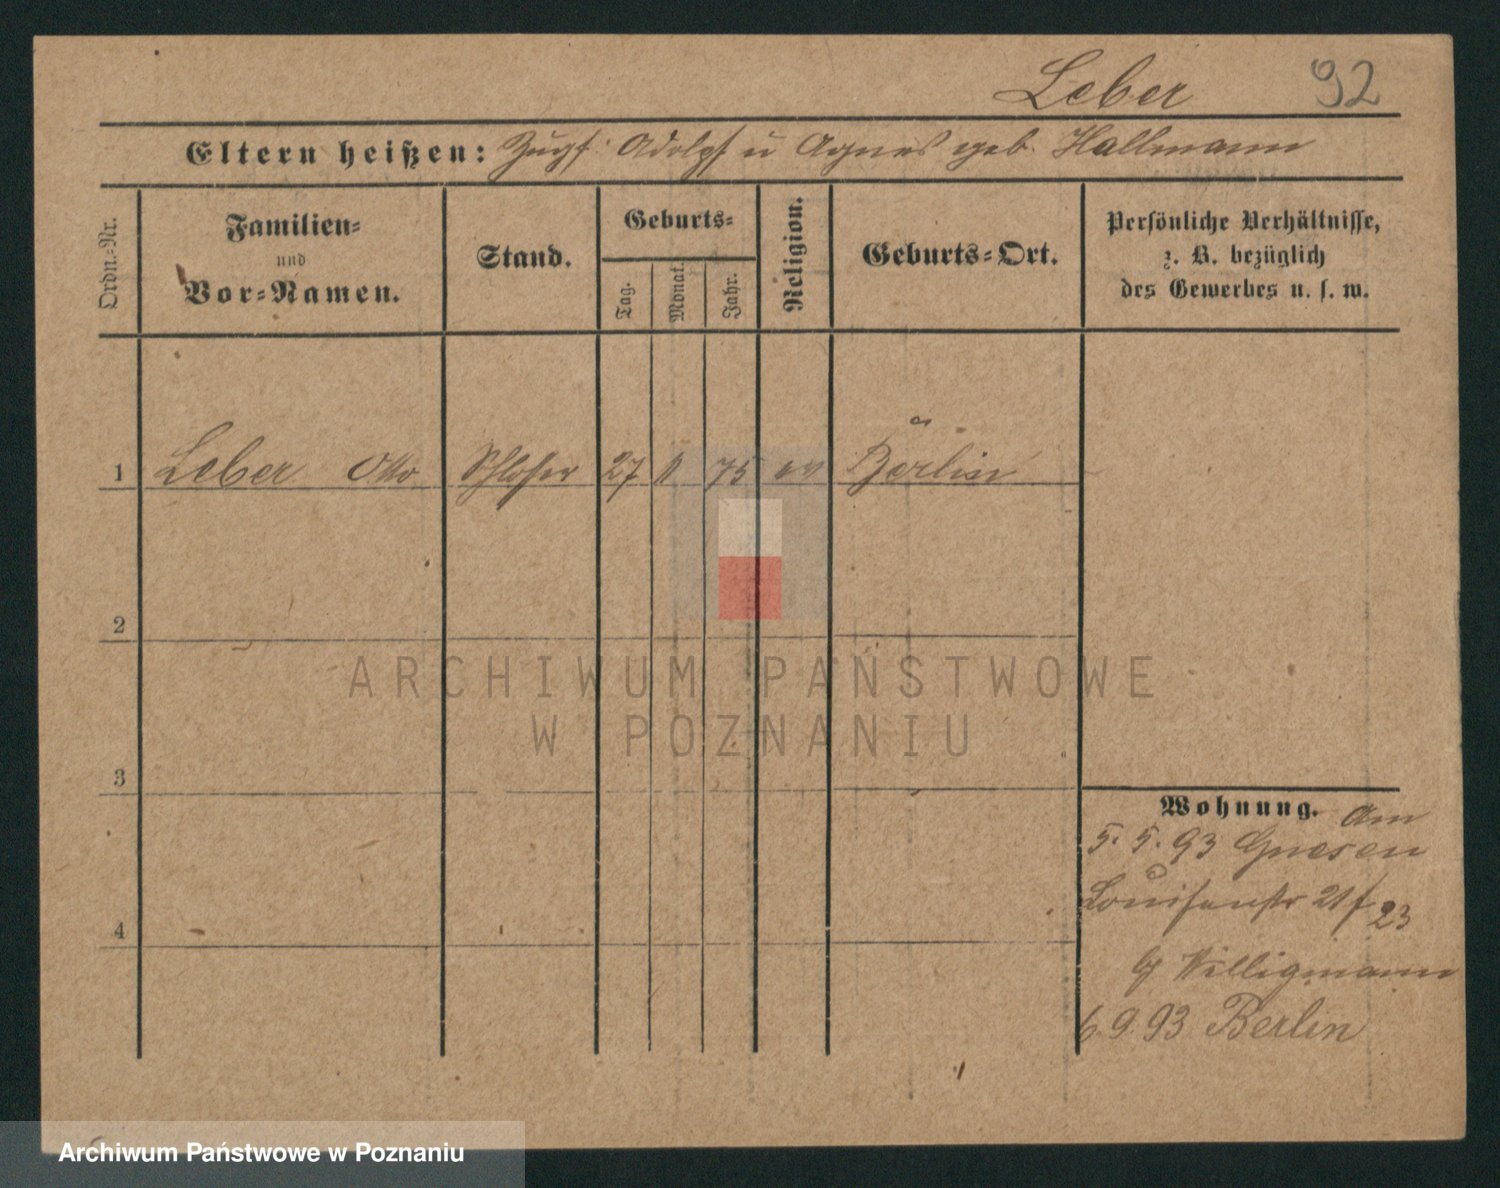 Leber 92
Eltern heißen: Adolph u Agnes geb. Hallmann
Ordn.-Nr.
Familien-
und
Vor-Namen.
Stand.
Geburts-
Tag.
Monat.
Jahr.
Religion.
Geburts-Ort.
Persönliche Verhältnisse,
z. B. bezüglich
des Gewerbes u. s. w.
1 Leber Otto Schlosser 27 11 75 ev Berlin
2
3
4
Wohnung. Am
5. 5. 93 Gnesen
Louisenstr 21/23
Willigmann
6. 9. 93 Berlin
ARCHIWUM PAŃSTWOWE
W POZNANIU
Archiwum Państwowe w Poznaniu